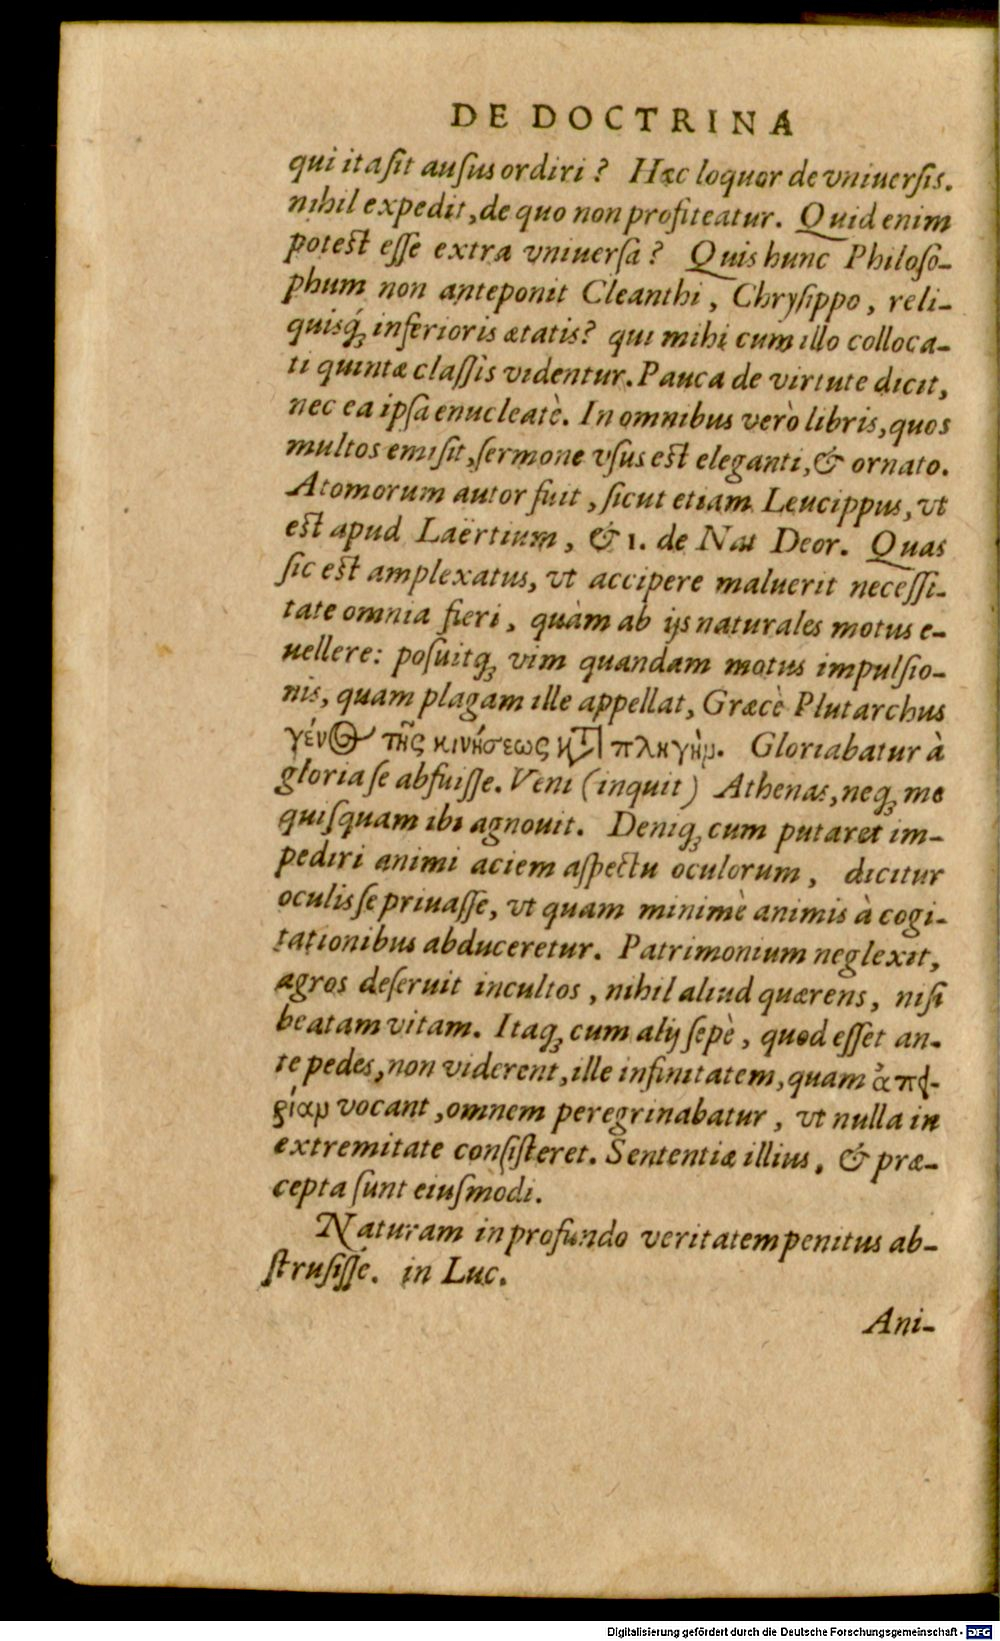 DE DOCTRINA
qui ita ſit auſus ordiri? Hæc loquor de vniuerſis.
nihil expedit, de quo non profiteatur. Quid enim
poteſt eſſe extra vniuerſa? Quis hunc Philoſo-
phum non anteponit Cleanthi, Chryſippo, reli-
quisq́; inferioris ætatis? qui mihi cum illo colloca-
ti quintæ claſſis videntur. Pauca de virtute dicit,
nec ea ipſa enucleatè. In omnibus verò libris, quos
multos emiſit, ſermone vſus eſt eleganti, & ornato.
Atomorum autor fuit, ſicut etiam Leucippus, vt
eſt apud Laërtium, & 1. de Nat Deor. Quas
ſic eſt amplexatus, vt accipere maluerit neceſſi-
tate omnia fieri, quàm ab ijs naturales motus e-
uellere: poſuitq; vim quandam motus impulſio-
nis, quam plagam ille appellat, Græcè Plutarchus
γένος τῆς κινήσεως κτ̀ πληγὴν. Gloriabatur à
gloria ſe abfuiſſe. Veni (inquit) Athenas, neq; me
quiſquam ibi agnouit. Deniq; cum putaret im-
pediri animi aciem aſpectu oculorum, dicitur
oculis ſe priuaſſe, vt quam minimè animis à cogi-
tationibus abduceretur. Patrimonium neglexit,
agros deſeruit incultos, nihil aliud quærens, niſi
beatam vitam. Itaq; cum alij ſepè, quod eſſet an-
te pedes, non viderent, ille infinitatem, quam ἀπει-
ρίαν vocant, omnem peregrinabatur, vt nulla in
extremitate conſiſteret. Sententiæ illius, & præ-
cepta ſunt eiuſmodi.
Naturam in profundo veritatem penitus ab-
ſtruſiſſe. in Luc.
Ani-
Digitalisierung gefördert durch die Deutsche Forschungsgemeinschaft - DFG